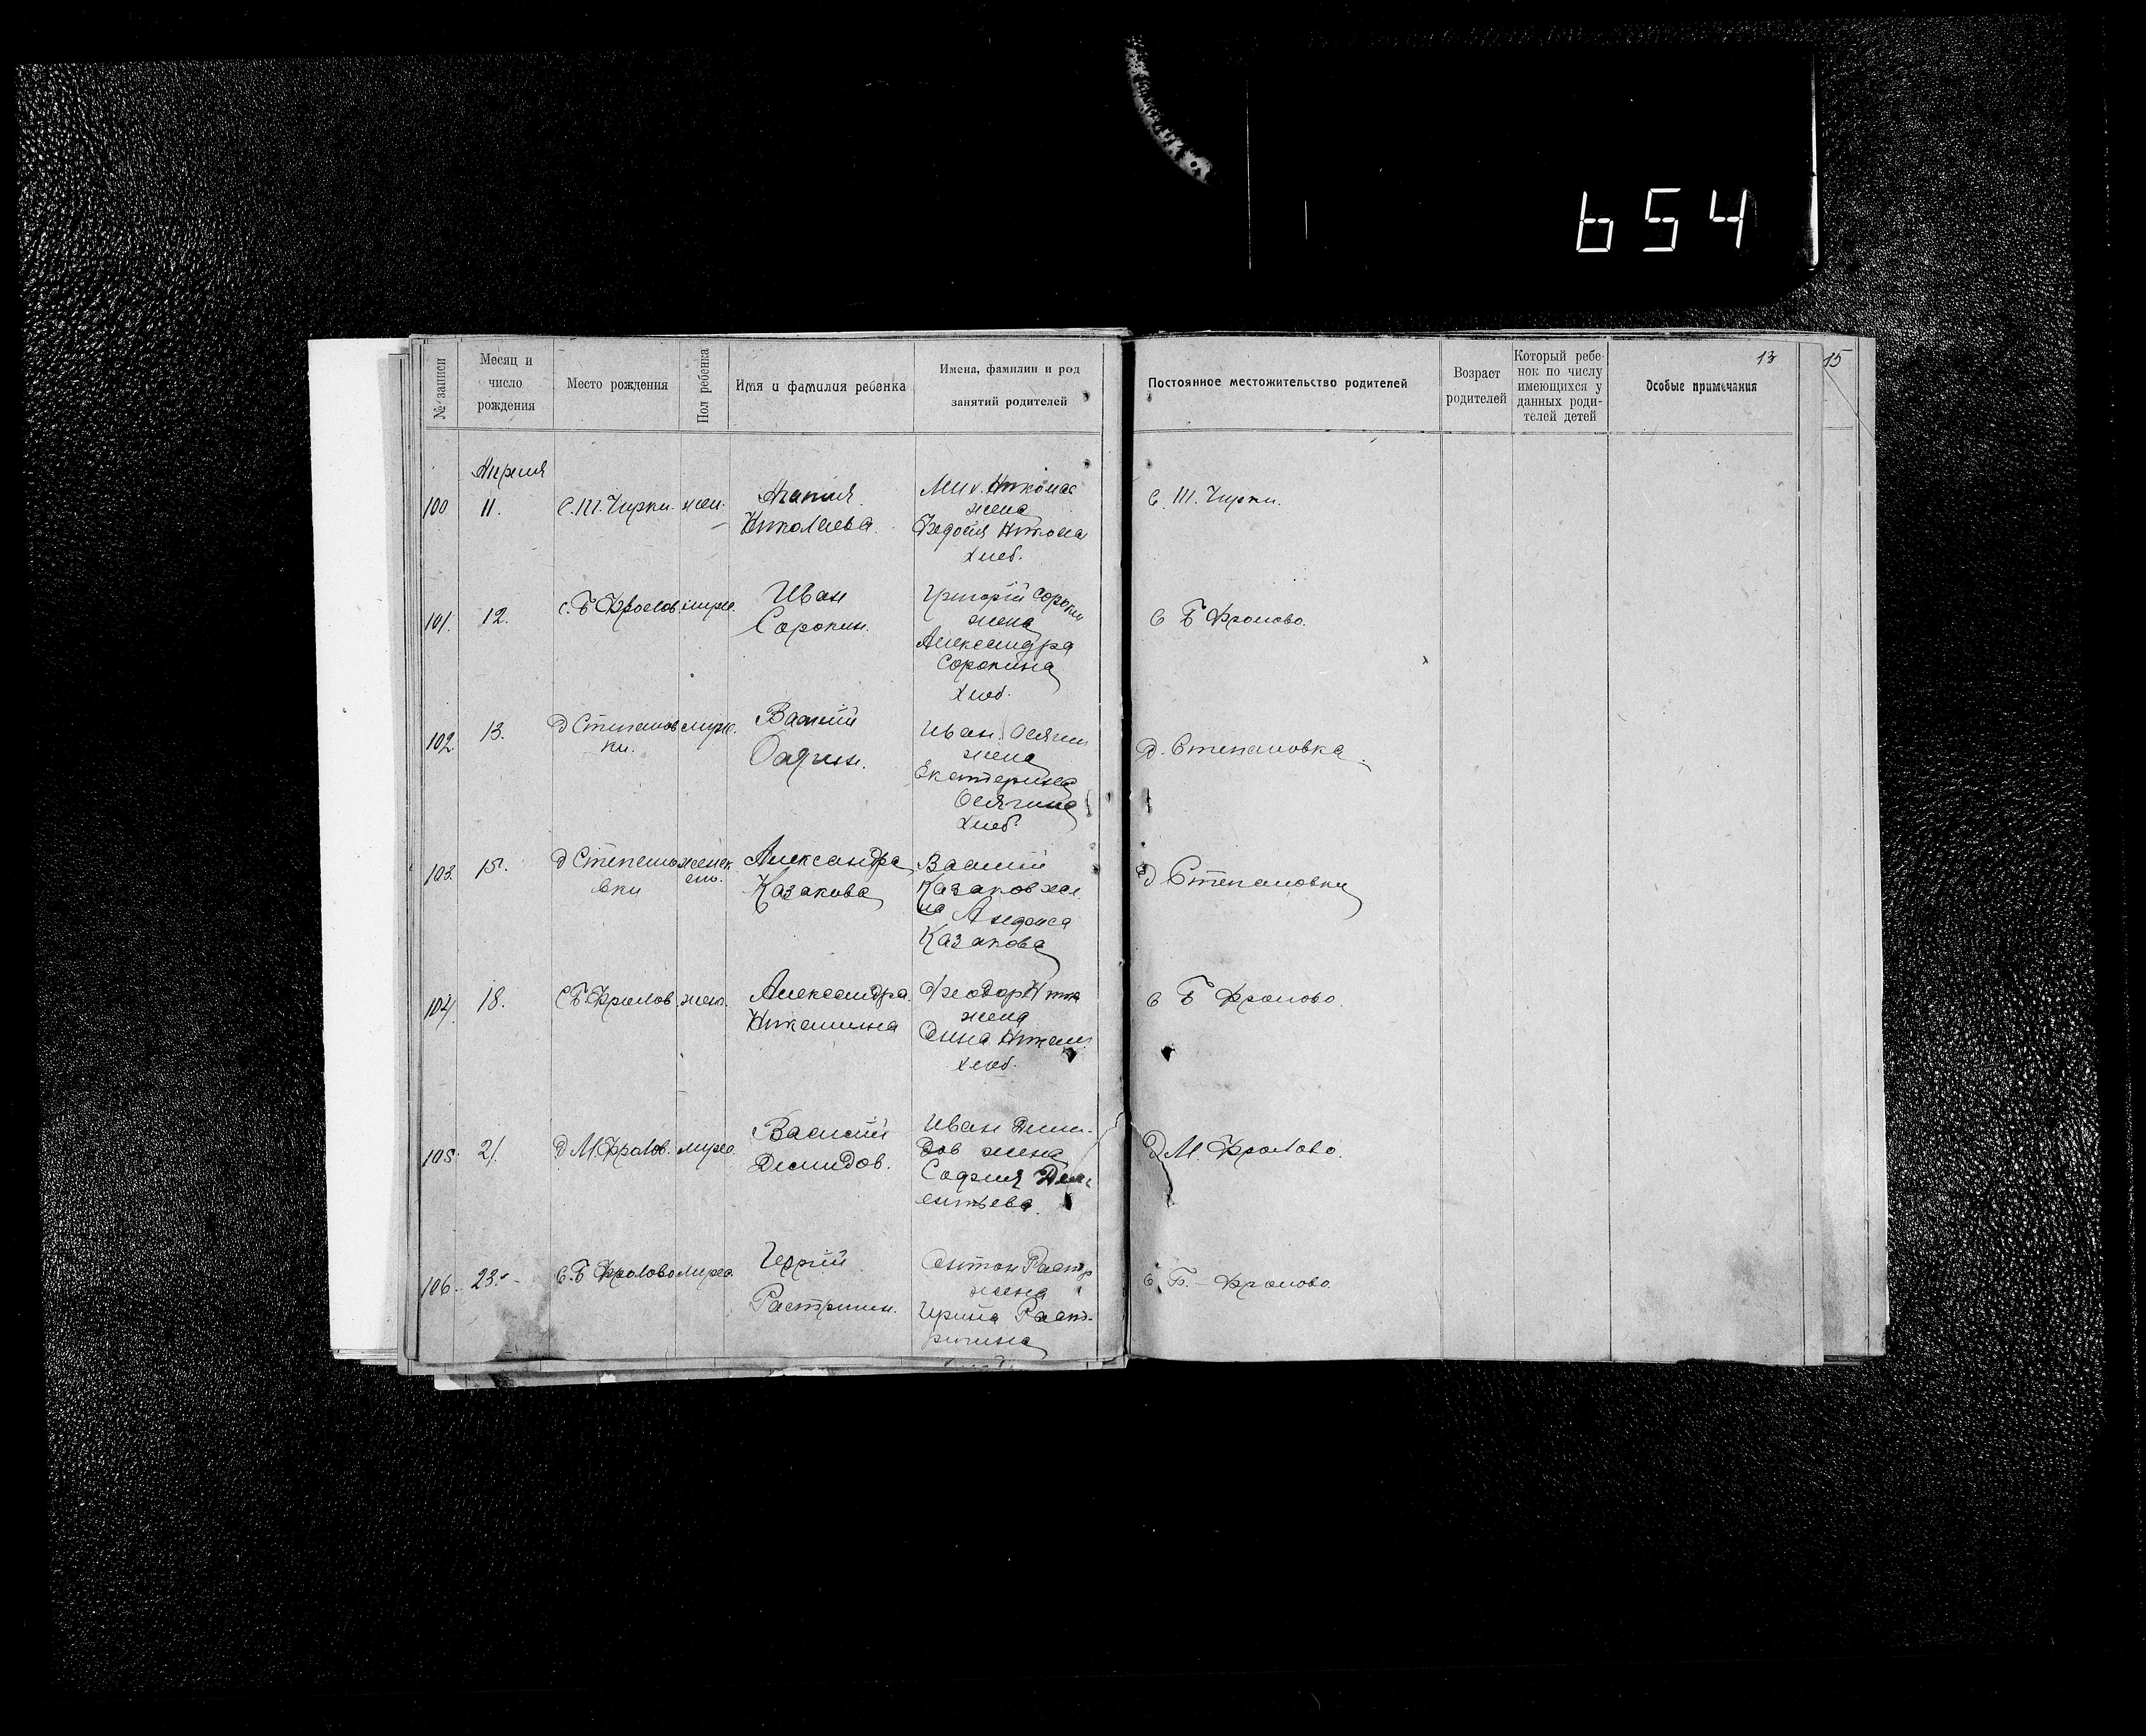 654
13
15
№ записи
Месяц и число рождения
Место рождения
Пол ребенка
Имя и фамилия ребенка
Имена, фамилии и род занятий родителей
Постоянное местожительство родителей
Возраст родителей
Который ребе-
нок по числу
имеющихся у
данных роди-
телей детей
Особые примечания
Апреля
100 11. С. Ш. Чирки. жен. Агапия
Николаева.
Мих. Николае
жена
Федосия Никола
хлеб.
С. Ш. Чирки.
101. 12. С. Б Фролов. муж.
Иван
Сорокин.
Григорій Сорокин
жена
Александра
Сорокина
хлеб.
С Б Фролово.
102. 13. д Степанов муж.
ки.
Василій
Осягин.
Иван Осягин
жена
Екатерина
Осягина
хлеб.
д. Степановка.
103. 15. д Степано женск
вки
Александра
Казакова
Василій
Казаков же
на
Казакова
д Степановки
104. 18. С Б Фролов. жен.
Александра.
Никишина
Феодор
жена
Анна
хлеб.
С Б Фролово.
105. 21. д М. Фролов. муж.
Василий
Демидов.
Иван Деми-
дов жена
София Дем
ентьева.
д М. Фролово.
106. 23. С. Б Фролово муж.
Растригин.
Антон Растр
жена
Ирина Раст-
ригина
С. Б. - Фролово.